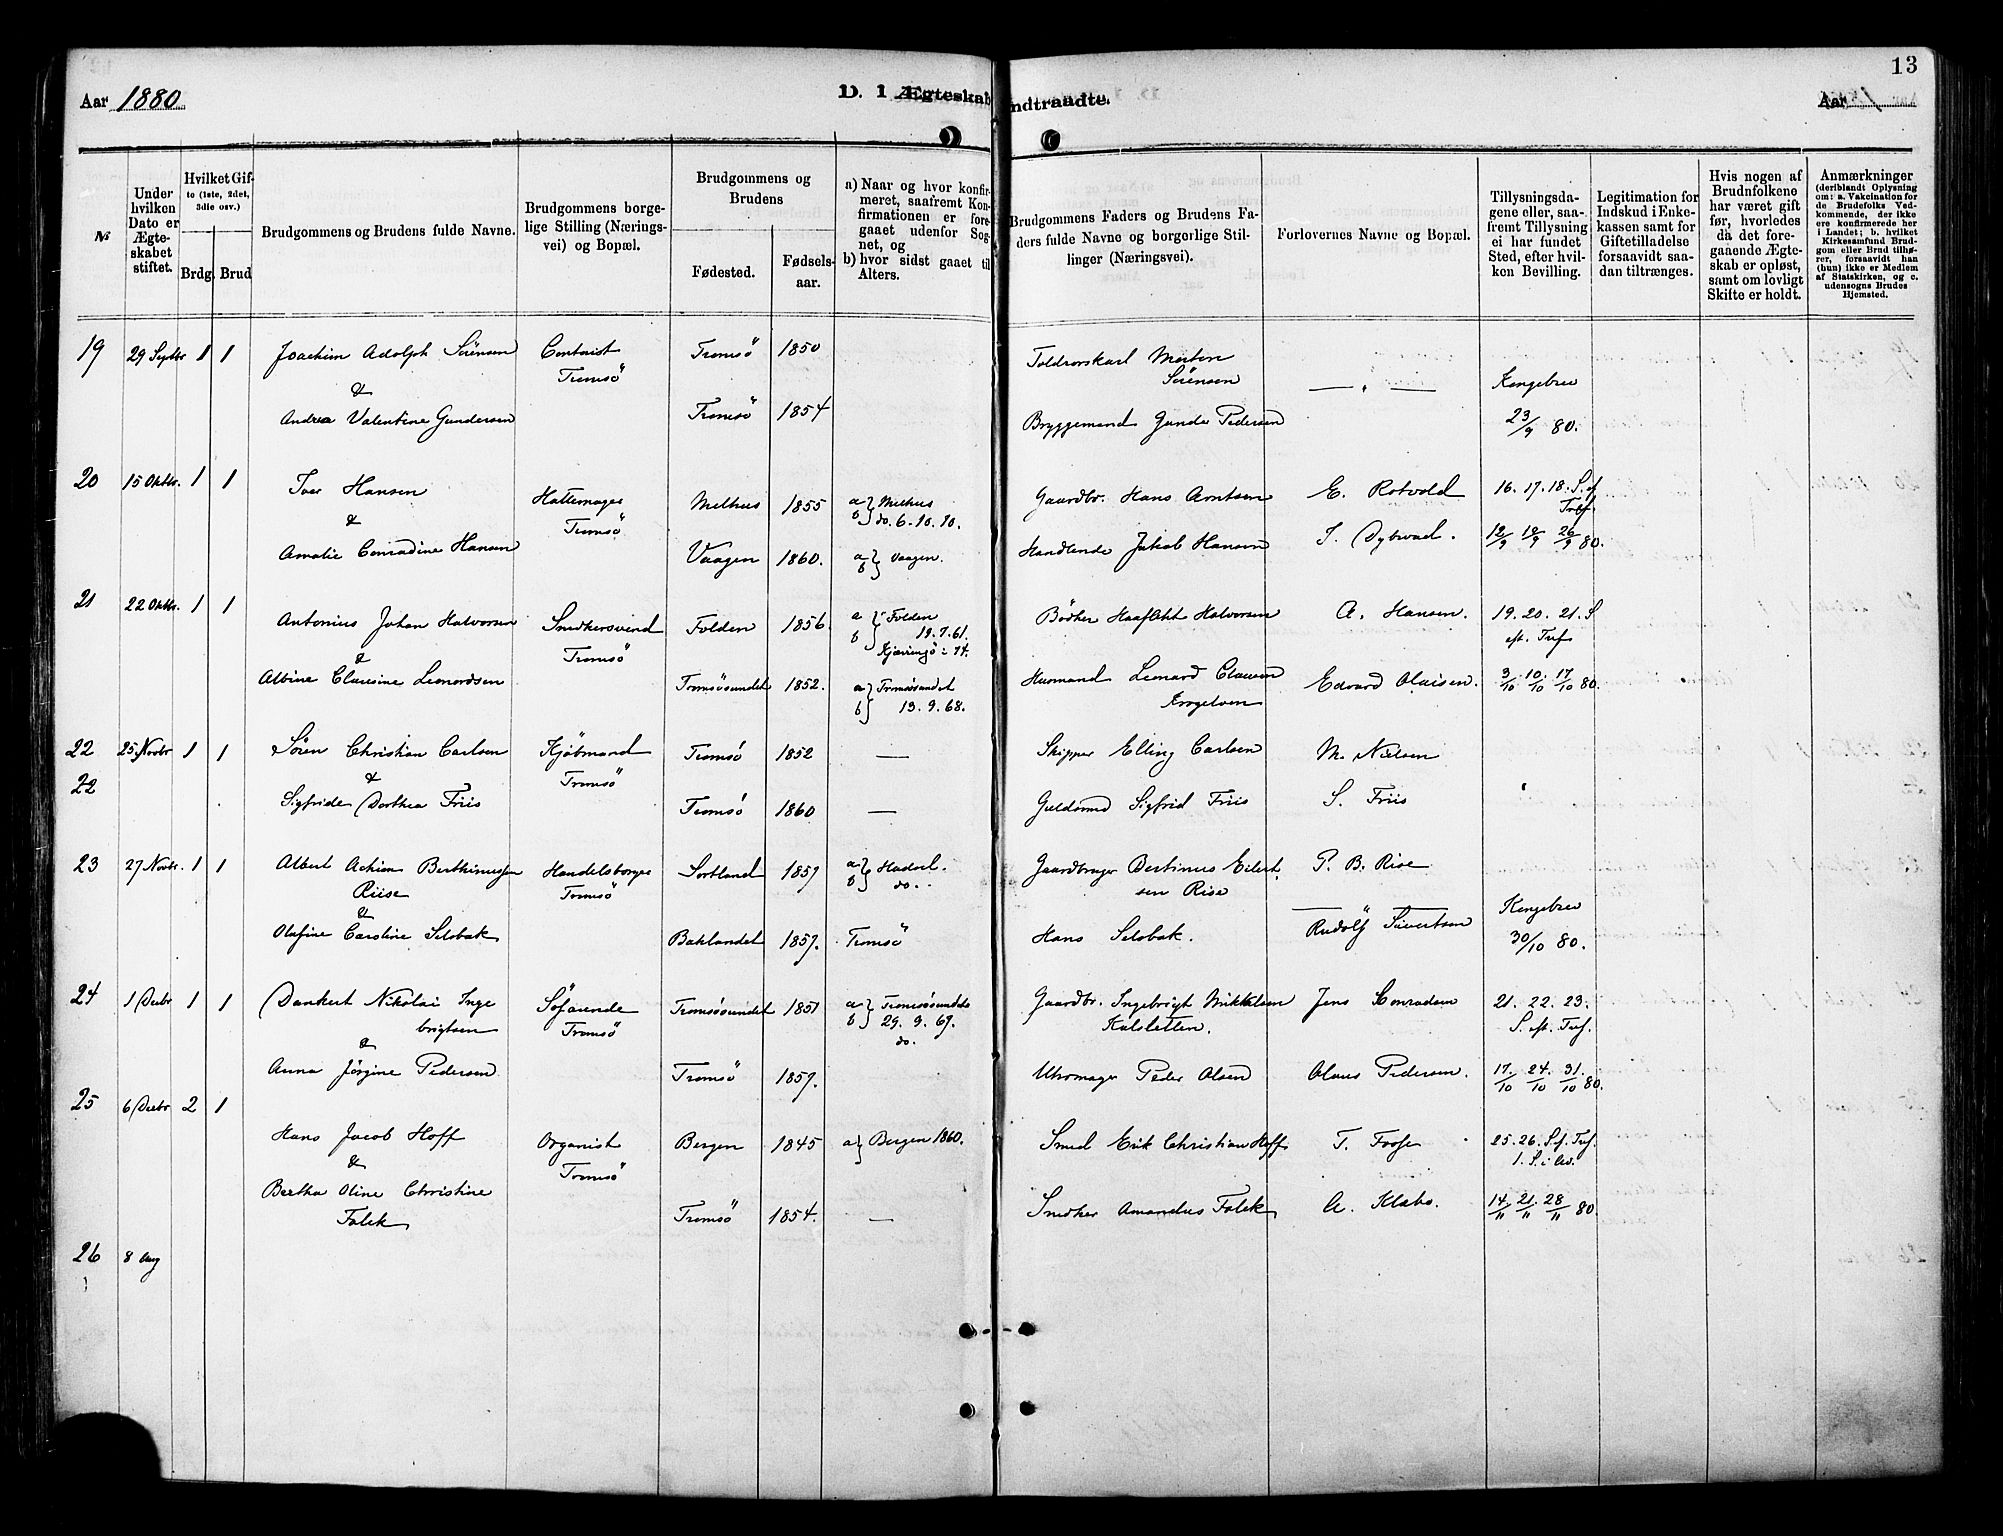 13
Aar 1880
D. 1 Ægteskab
indtraadte.
Aar
№
Under hvilken Dato er Ægteskabet stiftet.
Hvilket Gifte (1ste, 2det, 3die osv.)
Brdg.
Brud
Brudgommens og Brudens fulde Navne.
Brudgommens borgelige Stilling (Næringsvei) og Bopæl.
Brudgommens og Brudens
Fødested.
Fødselsaar.
a) Naar og hvor konfirmeret, saafremt Konfirmationen er foregaaet udenfor Sognet, og
b) hvor sidst gaaet til Alters.
Brudgommens Faders og Brudens Faders fulde Navne og borgerlige Stillinger (Næringsvei).
Forlovernes Navne og Bopæl.
Tillysningsdagene eller, saafremt Tillysning ei har fundet Sted, efter hvilken Bevilling.
Legitimation for Indskud i Enkekassen samt for Giftetilladelse forsaavidt saadan tiltrænges.
Hvis nogen af Brudnfolkene har været gift før, hvorledes da det foregaaende Ægteskab er opløst, samt om lovligt Skifte er holdt.
Anmærkninger
(deriblandt Oplysning om: a. Vakcination for de Brudefolks Vedkommende, der ikke ere konfirmerede her i Landet; b. hvilket Kirkesamfund Brudgom eller Brud tilhører, forsaavidt han (hun) ikke er Medlem af Statskirken, og c. udensogns Brudes Hjemsted.
19 29 Septbr 1 1 Joachim Adolph Sörensen Contorist Tromsö 1850 Toldrorskarl Morten
Tromsö Sörensen Kongebrev
&
Andrea Valentine Gundersen Tromsö 1854 Bryggemand Gunder Pedersen 23/9 80.
20 15 Oktbr. 1 1 Iver Hansen Hattemager Melhus 1855 a b Melhus Gaardbr. Hans Arntsen E. Rotvold 16. 17. 18. S. ef
& Tromsö do. 6-10.10. Tref.
Amalie Conradine Hansen Vaagen 1860. a b Vaagen. Handlende Jakob Hansen J. Dybwad. 12/9 19/9 26/9 80.
21 22 Oktbr. 1 1 Antonius Johan Halvorsen Snedkersvend Folden 1856 a b Folden Bödker Halvorsen A. Hansen. 19. 20. 21. S
& Tromsö 19.7.61. eft. Tref
Albine Clausine Leonordsen Tromsösundet 1852. a b Tromsösundet 13.9.68. Husmand Leonard Clausen Edvard Olaisen. 3/10 10/10 17/10 80.
22 25 Novbr 1 1 Sören Christian Carlsen Kjöbmand Tromsö 1852 — Skipper Elling Carlsen M. Nielsen
22 & Tromsö
Sigfride Dorthea Friis Tromsö 1860 — Guldsmed Sigfrid Friis S. Friis
23 27 Novbr. 1 1 Albert Achim Berthinussen Handelsborger Sortland 1857 a b Hadsel. Gaardbruger Bertinus Eilert P. B. Rise
Riise Tromsö do. sen Rise
& Kongebrev
Olafine Caroline Selsbak Baklandet 1857. Tromsö Hans Selsbak. Rudolf Sivertsen 30/10 80.
24 1 Decbr 1 1 Dankert Nikolai Inge Söfarende Tromsösundet 1851 a b Tromsösundet Gaardbr. Ingebrigt Mikkelsen Jens Conradsen 21. 22. 23.
brigtsen Tromsö 29.9.67. Kalsletten. S. eft. Tref.
& do.
Anna Jörgine Pedersen Tromsö 1857. Uhrmager Peder Olsen Olaus Pedersen. 17/10 24/10 31/10 80.
25 6 Decbr 2 1 Hans Jacob Hoff Organist Bergen 1845 a Bergen 1860. Smed Erik Christian Hoff T. 25. 26. S. f. Tref.
& Tromsö 1. S. i Adv.
Bertha Oline Christine Falck Tromsö 1854. — Snedker Amandus Falck A. Klæbo. 14/11 21/11 28/11 80
26 8 Aug